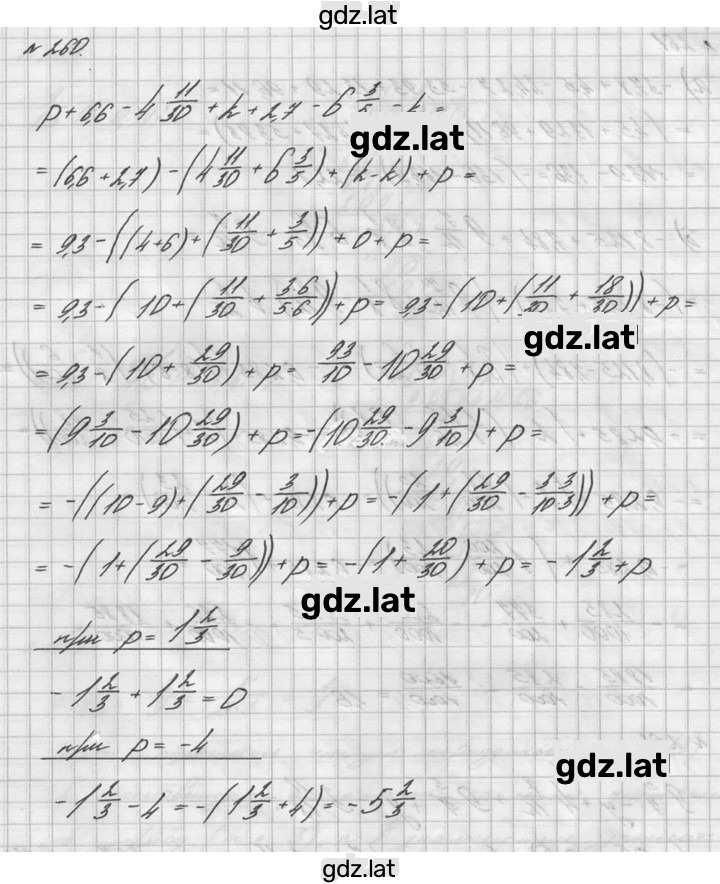 gdz.lat
№ 260.
p + 6,6 - 4 11/30 + k + 2,7 - 6 3/5 - k =
gdz.lat
= (6,6 + 2,7) - (4 11/30 + 6 3/5) + (k - k) + p =
= 9,3 - ((4+6) + (11/30 + 3/5)) + 0 + p =
= 9,3 - (10 + (11/30 + 3·6/5·6)) + p = 9,3 - (10 + (11/30 + 18/30)) + p =
gdz.lat
= 9,3 - (10 + 29/30) + p = 93/10 - 10 29/30 + p =
= (9 3/10 - 10 29/30) + p = -(10 29/30 - 9 3/10) + p =
= -((10-9) + (29/30 - 3/10)) + p = -(1 + (29/30 - 3·3/10·3)) + p =
= -(1 + (29/30 - 9/30)) + p = -(1 + 20/30) + p = -1 2/3 + p
gdz.lat
при p = 1 2/3
-1 2/3 + 1 2/3 = 0
при p = -4
gdz.lat
-1 2/3 - 4 = -(1 2/3 + 4) = -5 2/3
gdz.lat